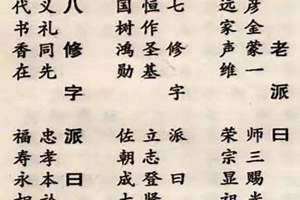 老派曰
彦金蒙一　师三赐
远家声维　荣宗显祖
七修字派曰
恒作圣基　立志登贤
国树鸿勋　佐朝成
八修字派曰
义礼同先　忠孝本
代书香在　福寿永